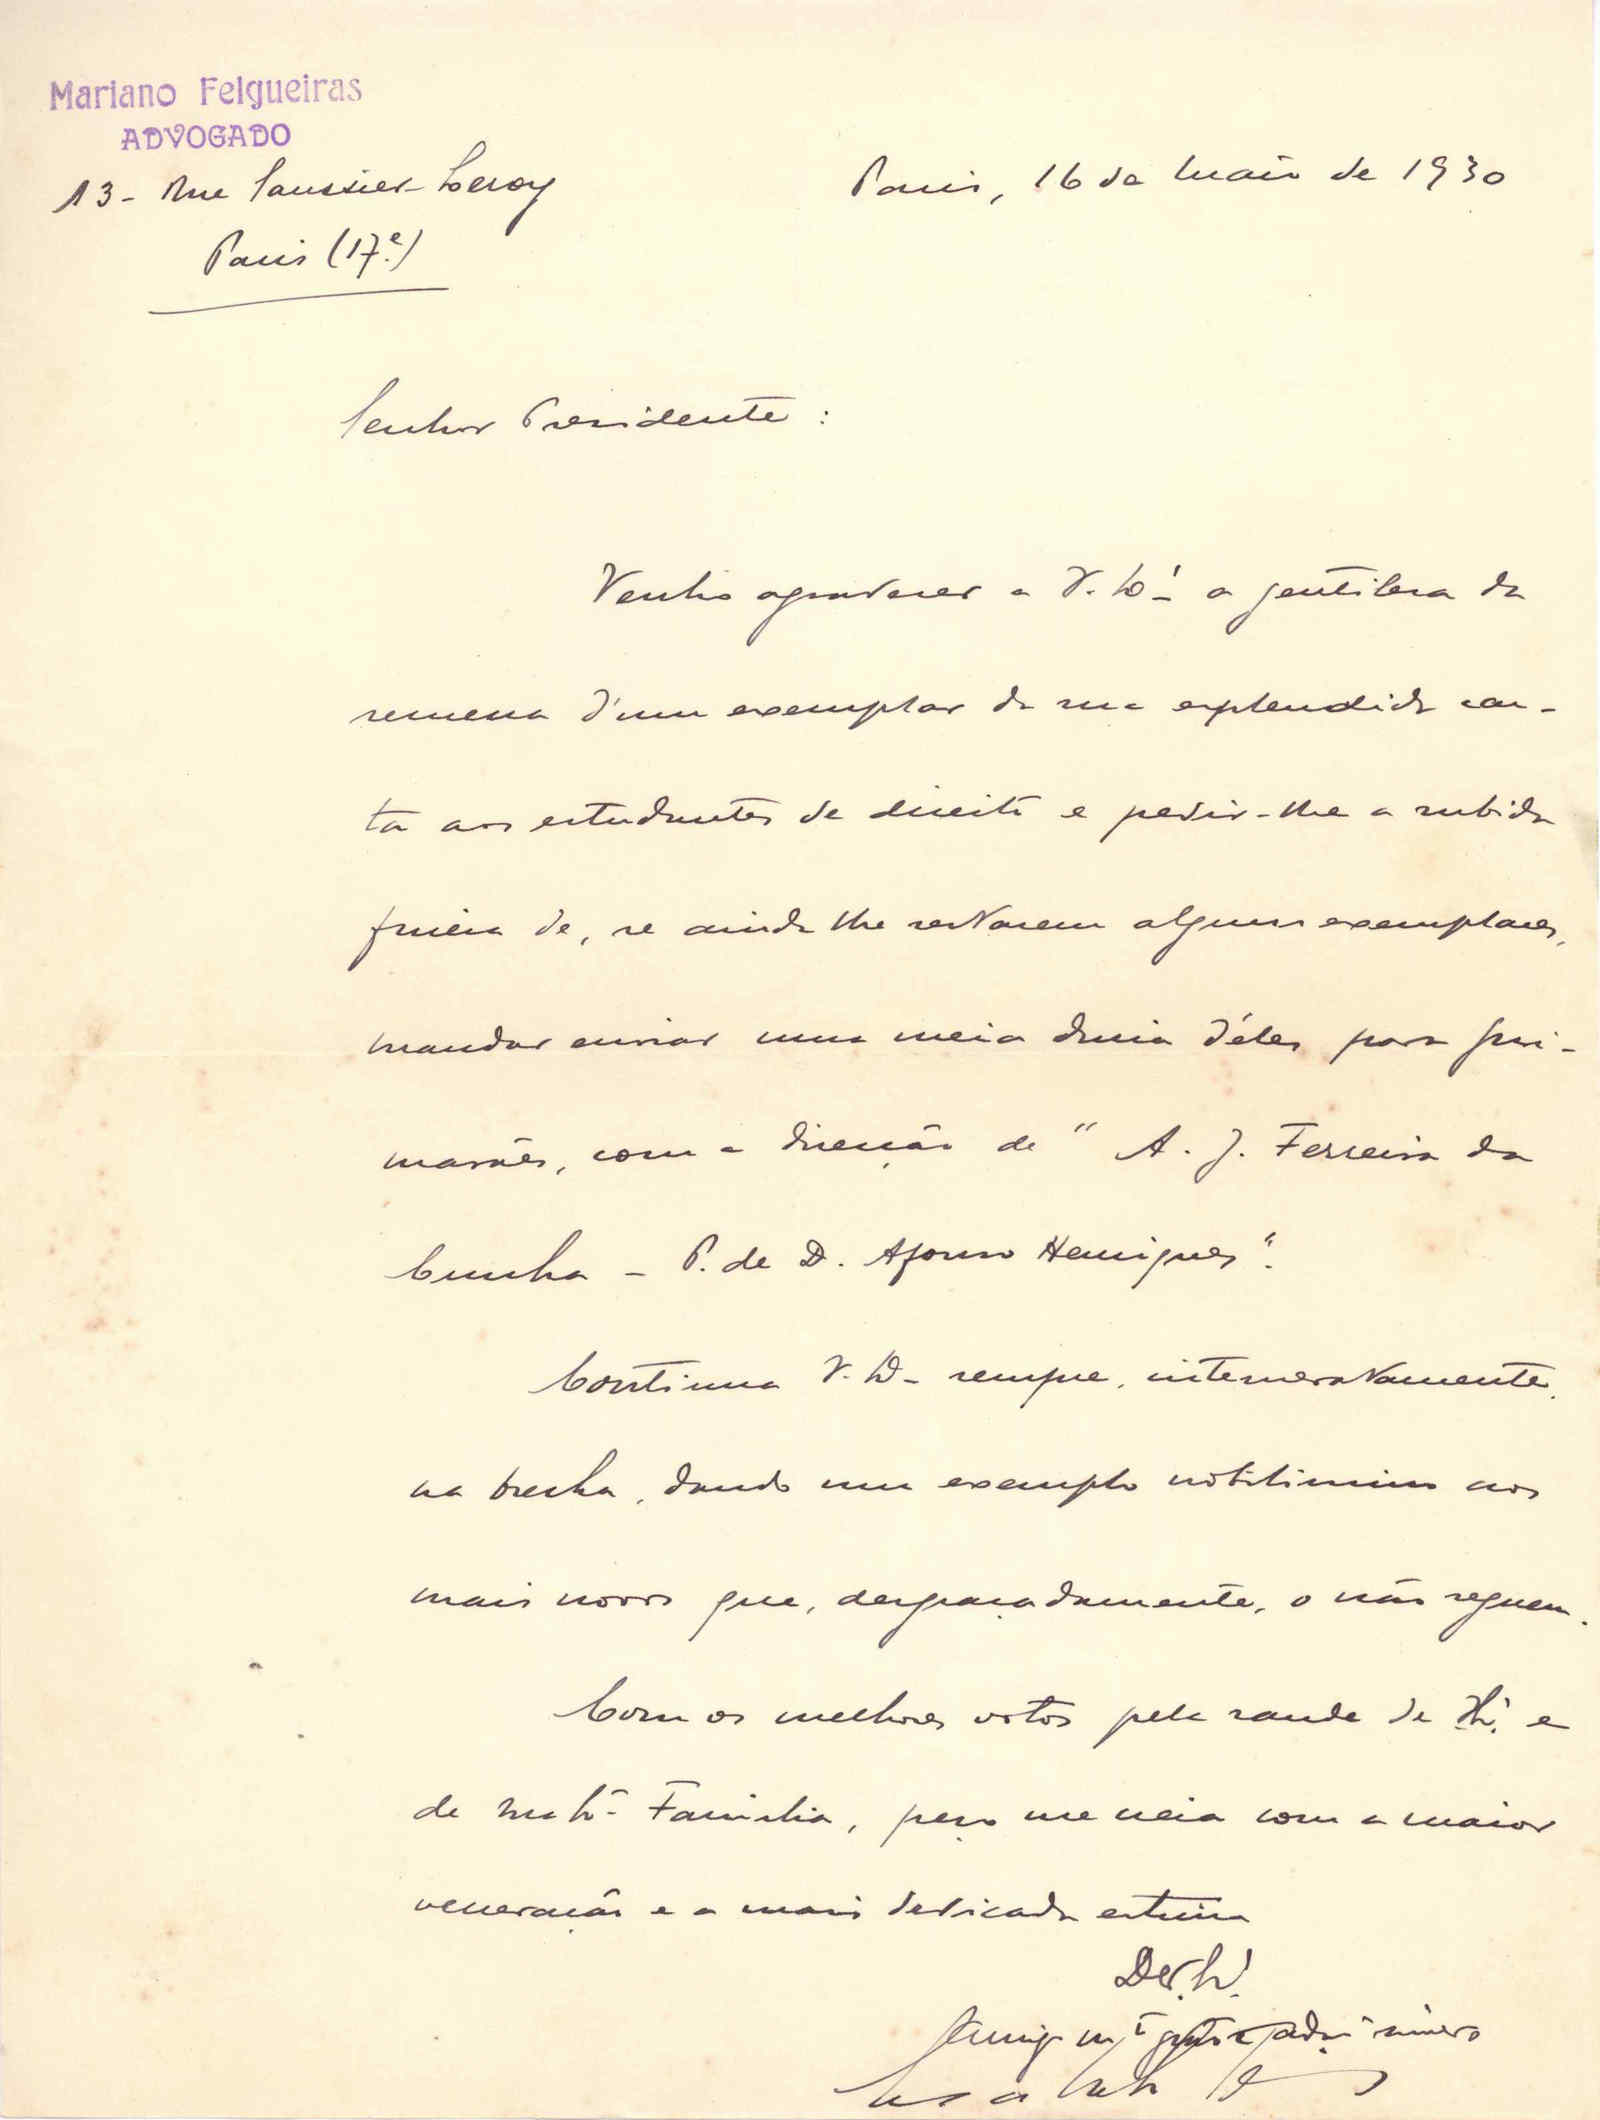 Mariano Felgueiras
ADVOGADO
13 - Rue Saussier-Leroy
Paris (17e.)
Paris, 16 de Maio de 1930
Senhor Presidente:
Venho agradecer a V. Ex.ª a gentileza da
remessa d'um exemplar da sua esplendida car-
ta aos estudantes de direito e pedir-lhe a subida
fineza de, se ainda lhe restarem alguns exemplares,
mandar enviar uma meia duzia d'eles para Gui-
marães, com a direcção de "A. J. Ferreira da
Cunha - P. de D. Afonso Henriques".
Continua V. Ex.ª sempre, intemeratamente,
na brecha, dando um exemplo nobilissimo aos
mais novos que, desgraçadamente, o não seguem.
Com os melhores votos pela saude de V. Ex.ª e
de Familia, peço me creia com a maior
veneração e a mais dedicada estima
De V. Ex.ª
Amigo m.to grato e admor. sincero